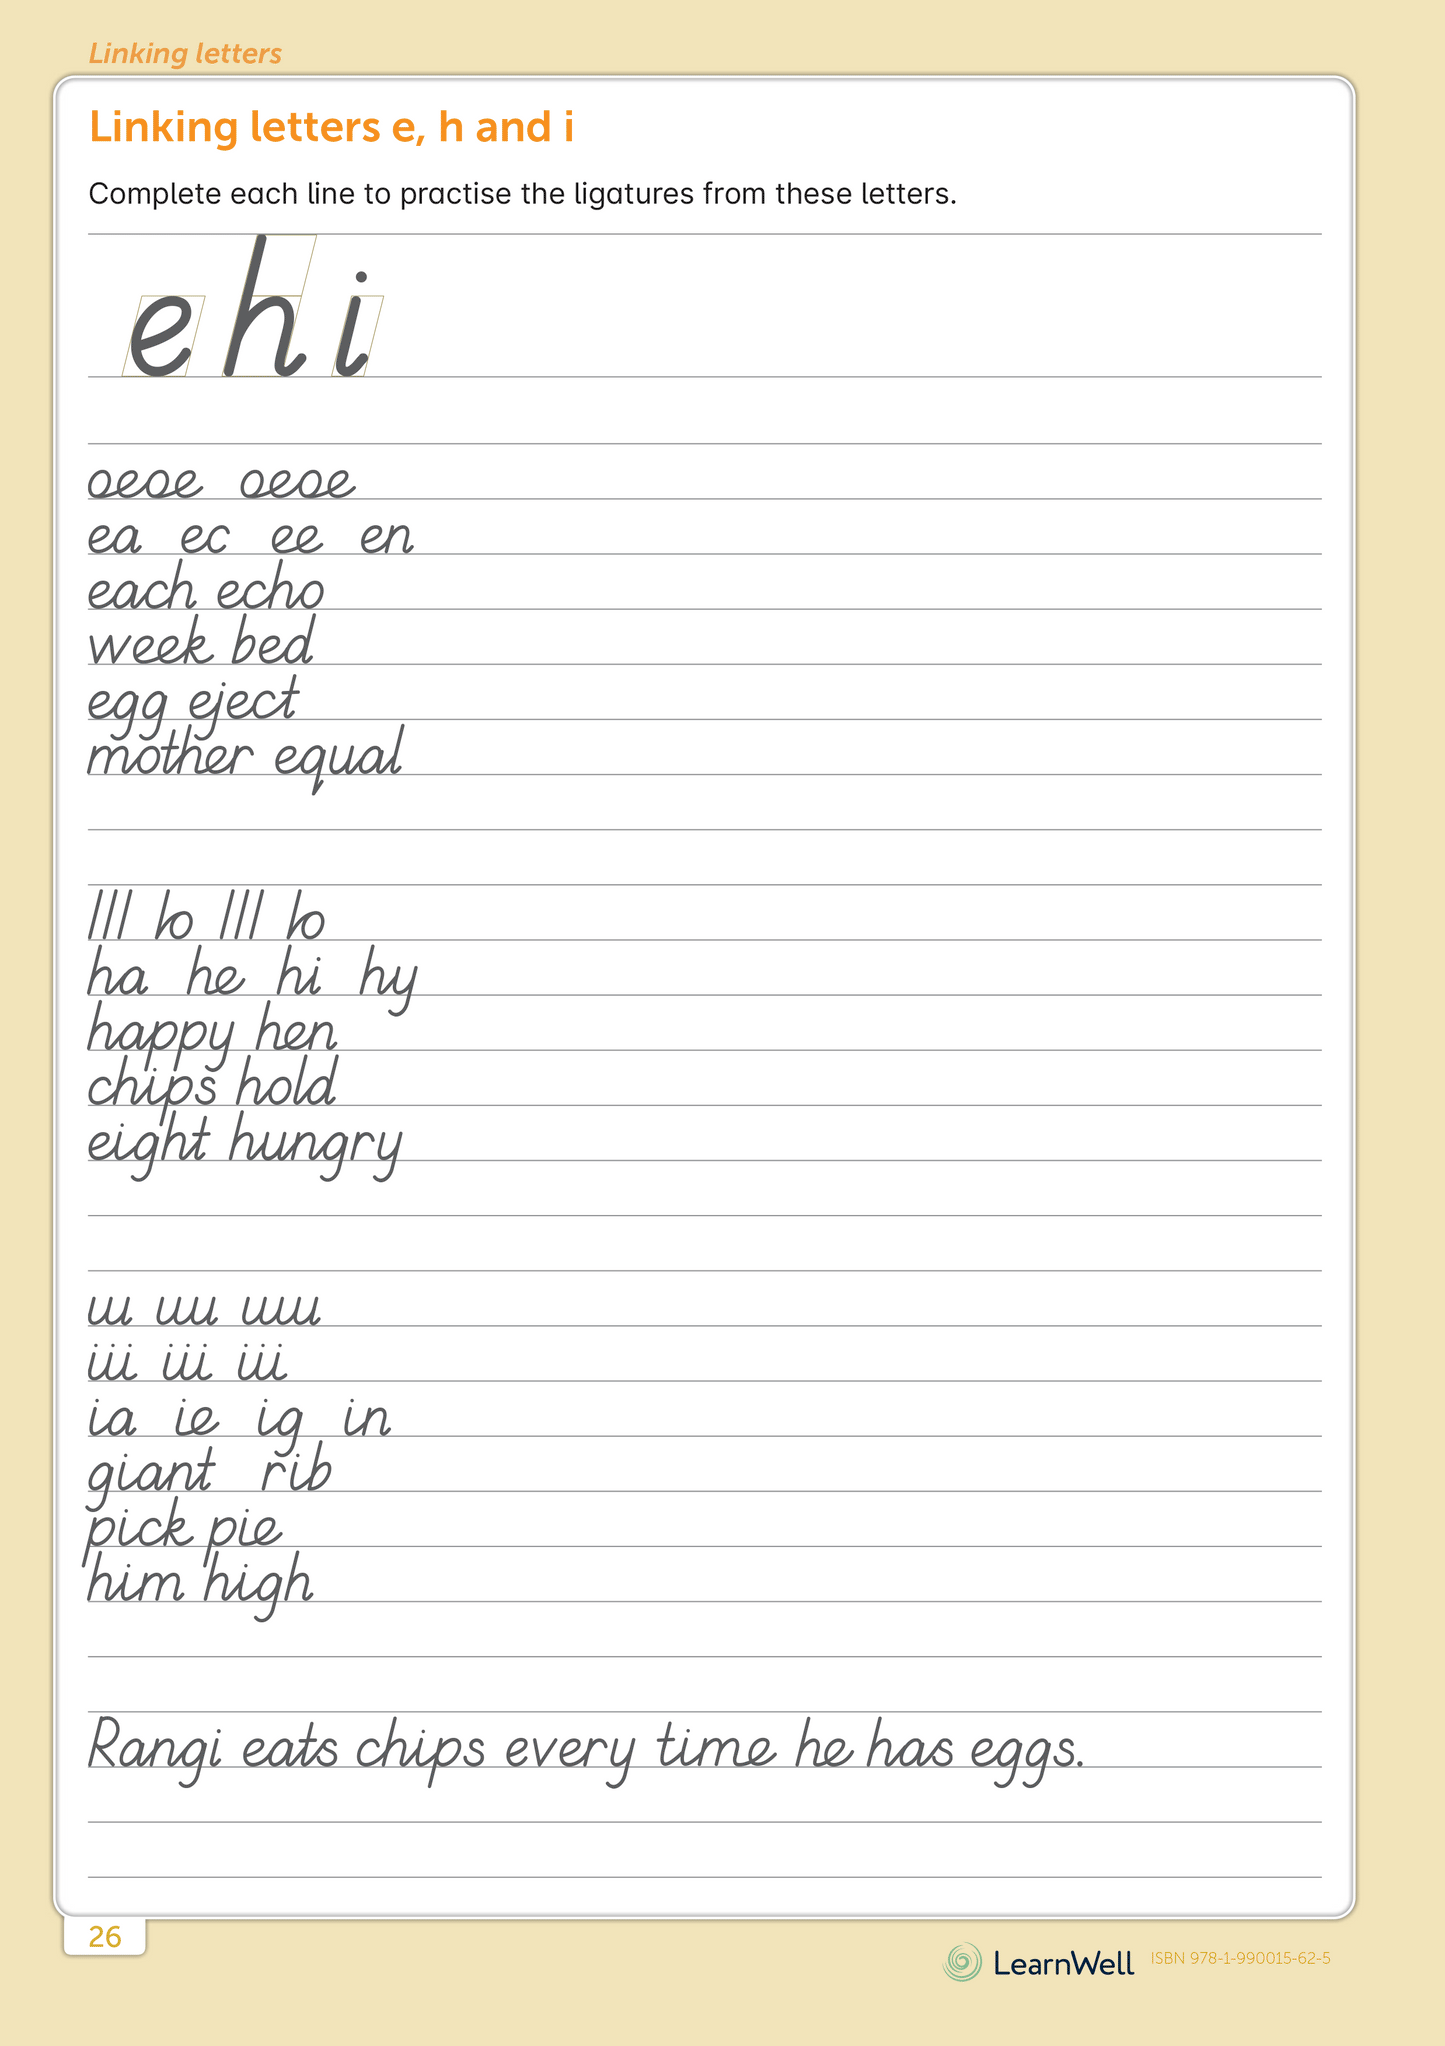 Linking letters
Linking letters e, h and i
Complete each line to practise the ligatures from these letters.
e h i
oeoe oeoe
ea ec ee en
each echo
week bed
egg eject
mother equal
lll lo lll lo
ha he hi hy
happy hen
chips hold
eight hungry
ııı ıııı ııııı
iii iii iii
ia ie ig in
giant rib
pick pie
him high
Rangi eats chips every time he has eggs.
26
LearnWell ISBN 978-1-990015-62-5